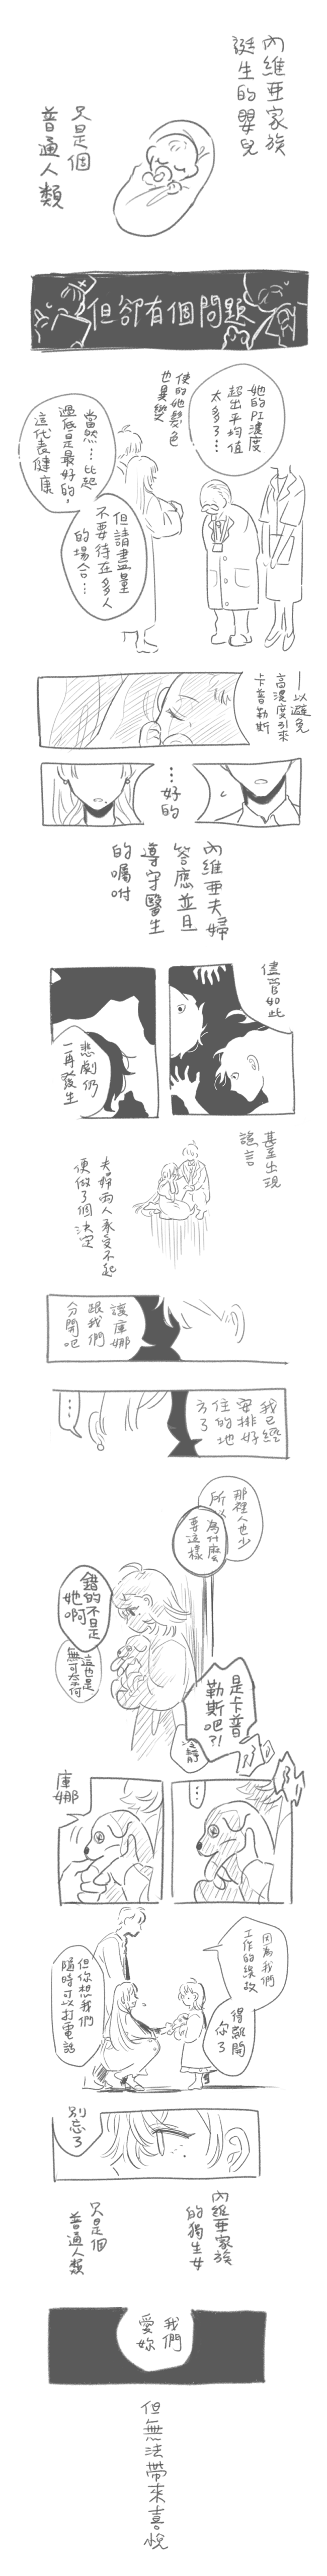 內維亞家族
誕生的嬰兒
只是個
普通人類
但卻有個問題
她的PI濃度
超出平均值
太多了…
使的她髮色
也異變
當然…比起
過低是最好的,
這代表健康
但請盡量
不要待在多人
的場合…
—以避免
高濃度引來
卡普勒斯
…好的
內維亞夫婦
答應並且
遵守醫生
的囑咐
儘管如此
悲劇仍
一再發生
甚至出現
謠言
夫婦兩人承受不起
便做了個決定
讓庫娜
跟我們
分開吧
我已經
安排好
住的地
方了
…
那裡人也少
所以
為什麼
要這樣
錯的不是
她啊
這也是
無可奈何
是卡普
勒斯吧?!
冷靜
…
庫娜
因為我們
工作的緣故
得離開
你了
但你想我們
隨時可以打電話
別忘了
內維亞家族
的獨生女
只是個
普通人類
我們
愛妳
但無法帶來喜悅